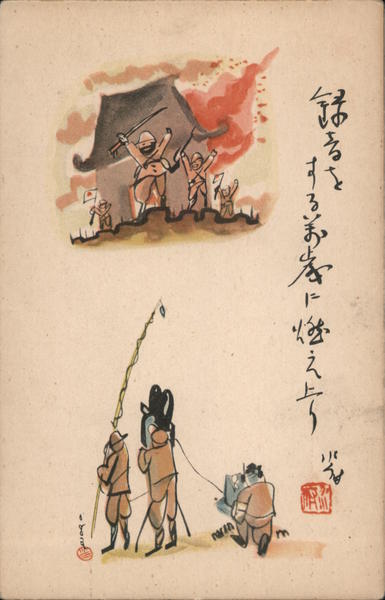 録音を
する萬歳に燃え上り